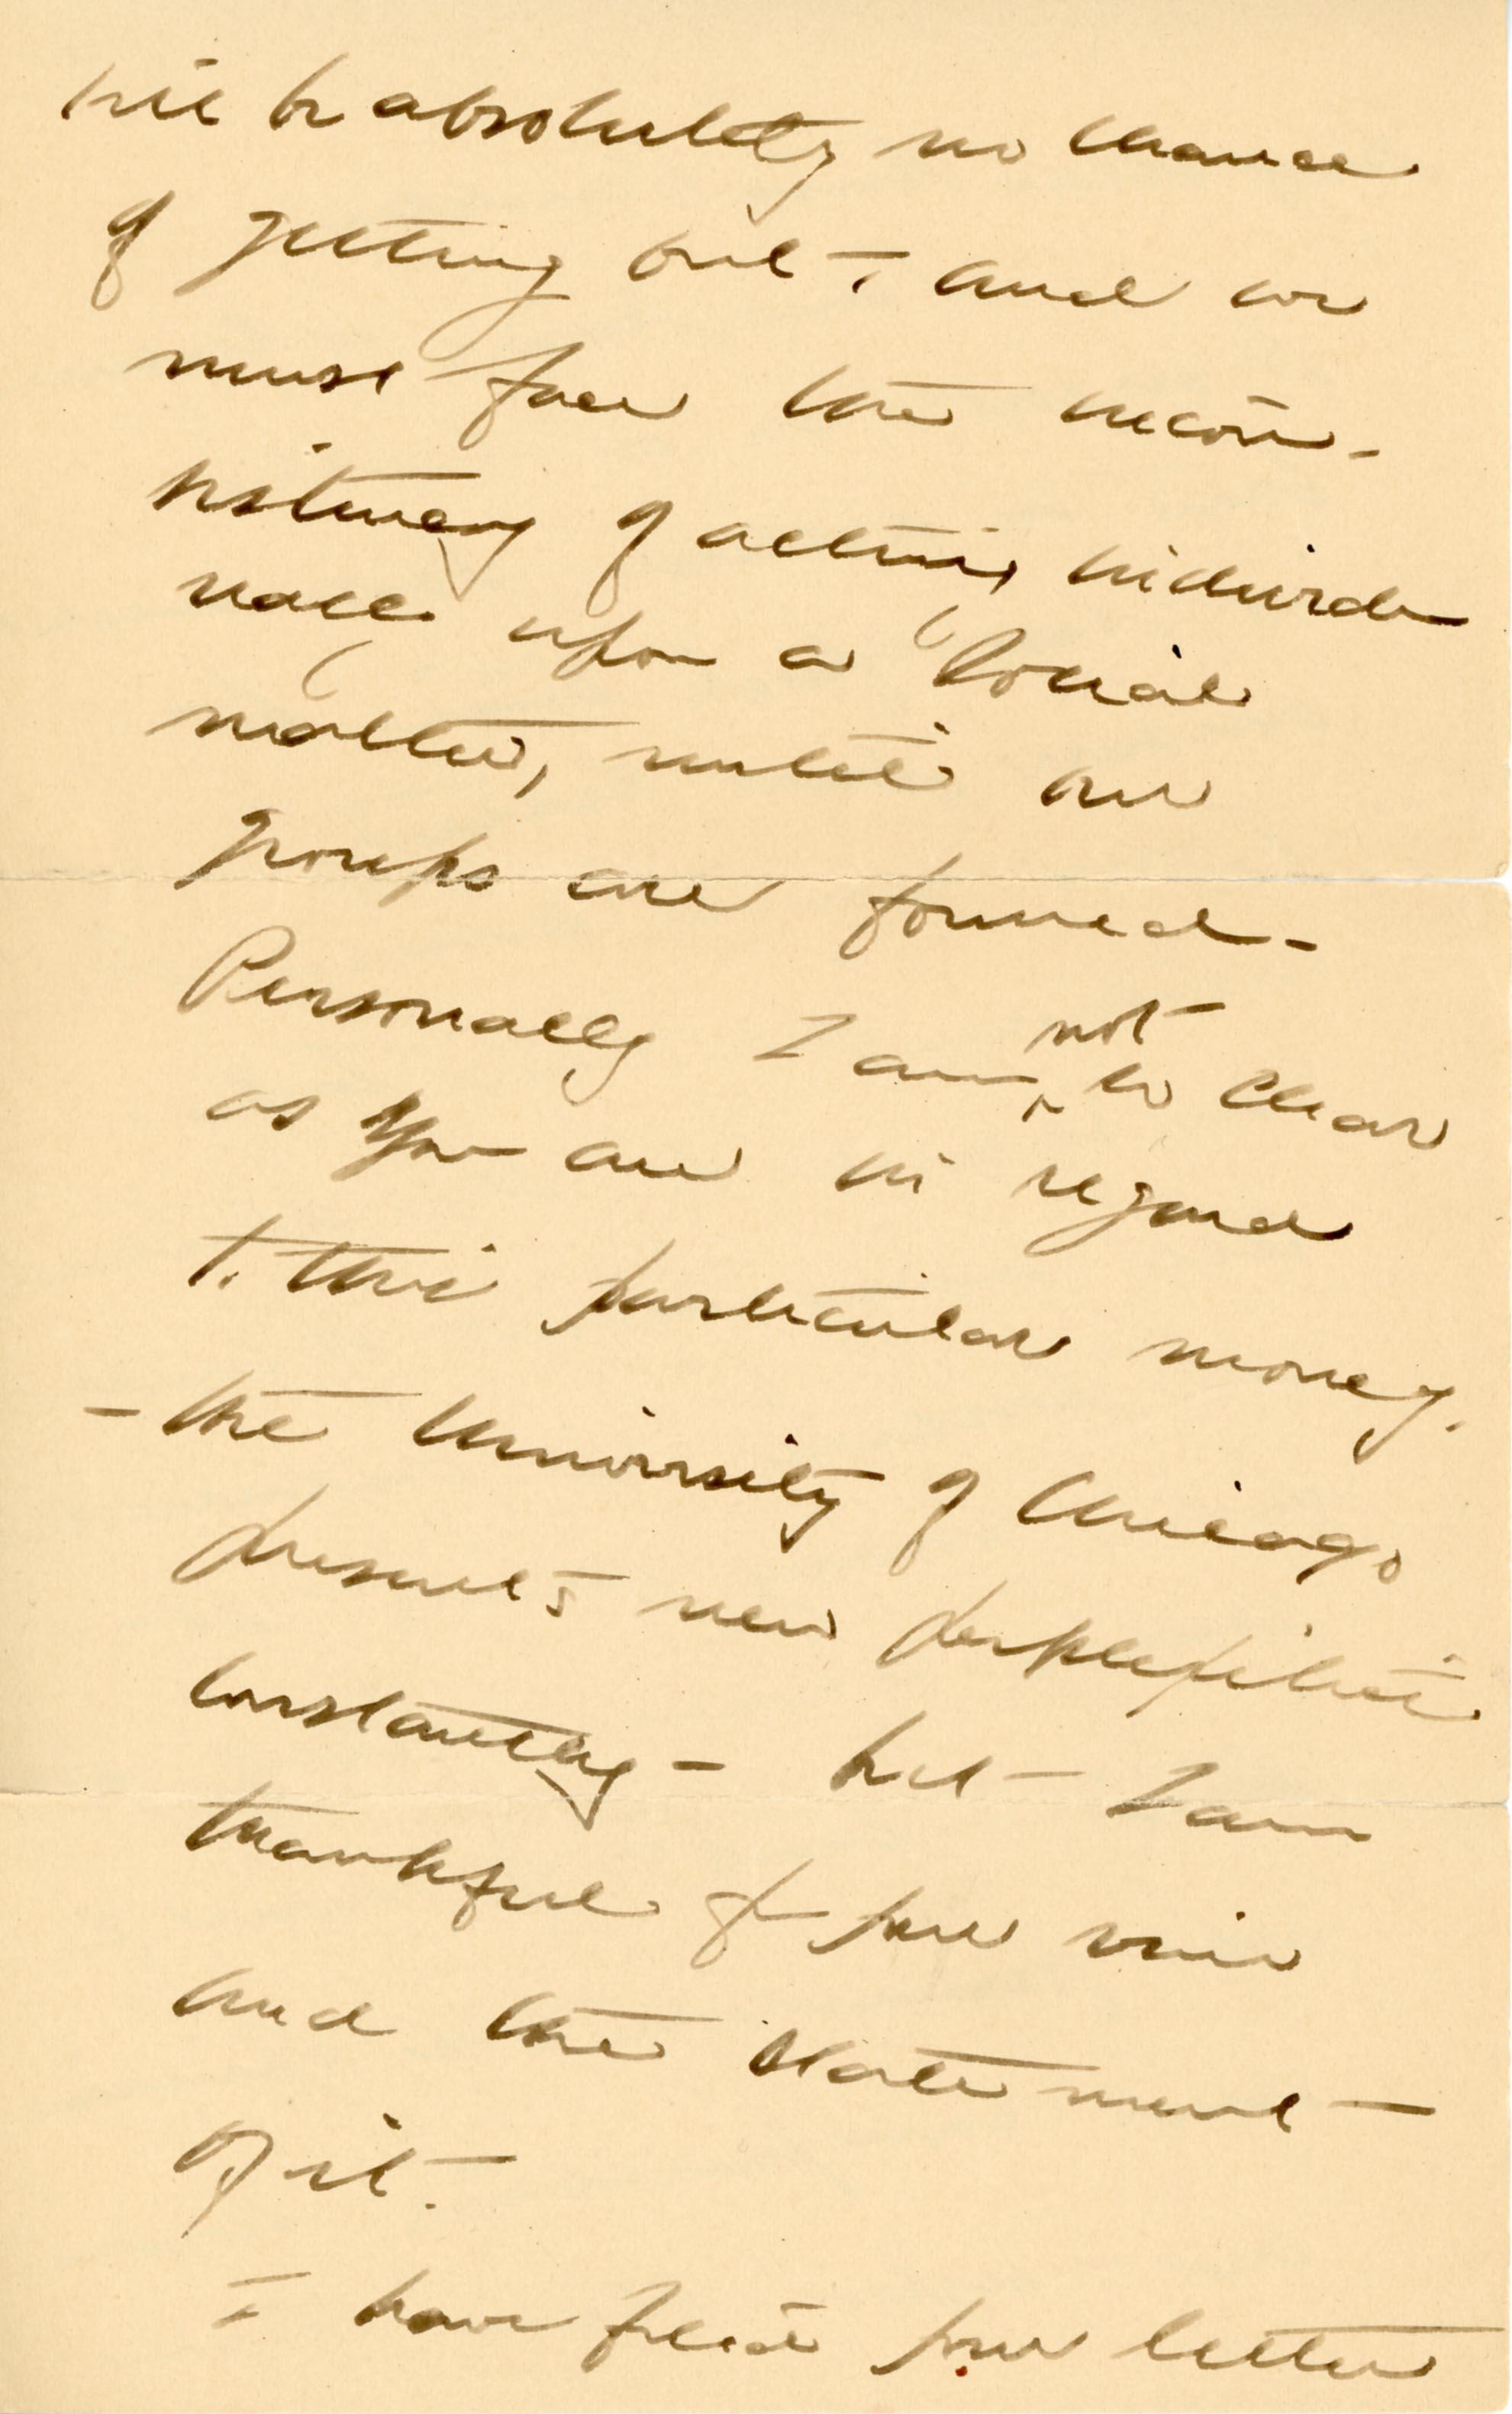 will be absolutely no chance
of getting out, and we
must face the incon-
sistency of acting individu-
ually upon a social
matter, until our
groups are formed -
Personally I am not so clear
as you are in regard
to this particular money.
- the University of Chicago
presents new perplexities
constantly - but I am
thankful for your view
and the statement
of it.
I have filed your letter